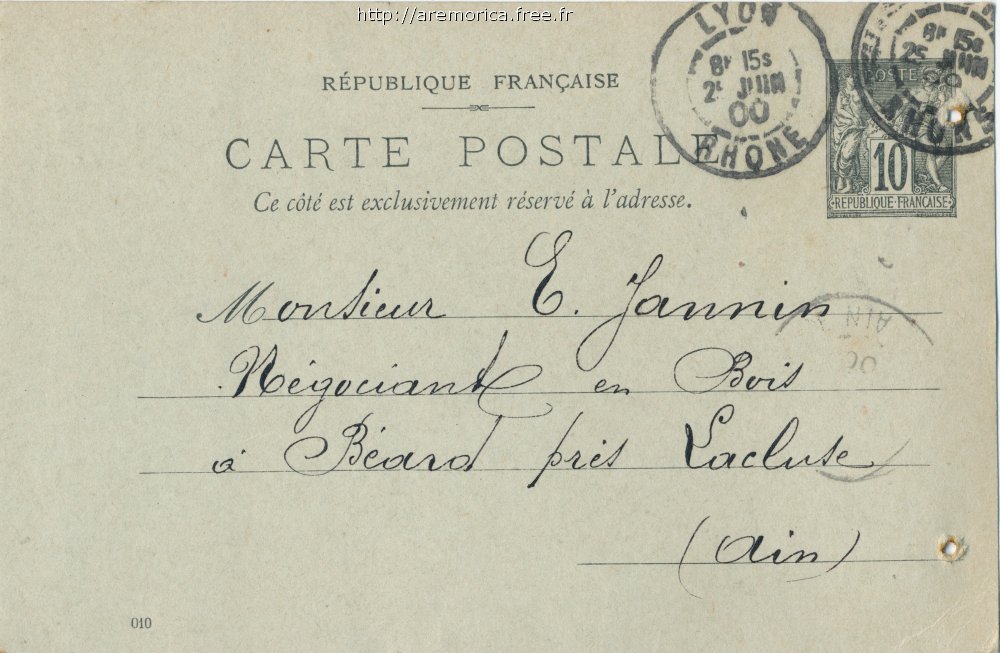 http://aremorica.free.fr
LYON
8E 15S
25 JUIN
00
RHONE
8E 15S
25 JUIN
00
RHONE
POSTE
10
REPUBLIQUE FRANÇAISE
RÉPUBLIQUE FRANÇAISE
CARTE POSTALE
Ce côté est exclusivement réservé à l'adresse.
Monsieur E. Jannin
Négociant en Bois
à Béard près Lacluse
(Ain)
AIN
010